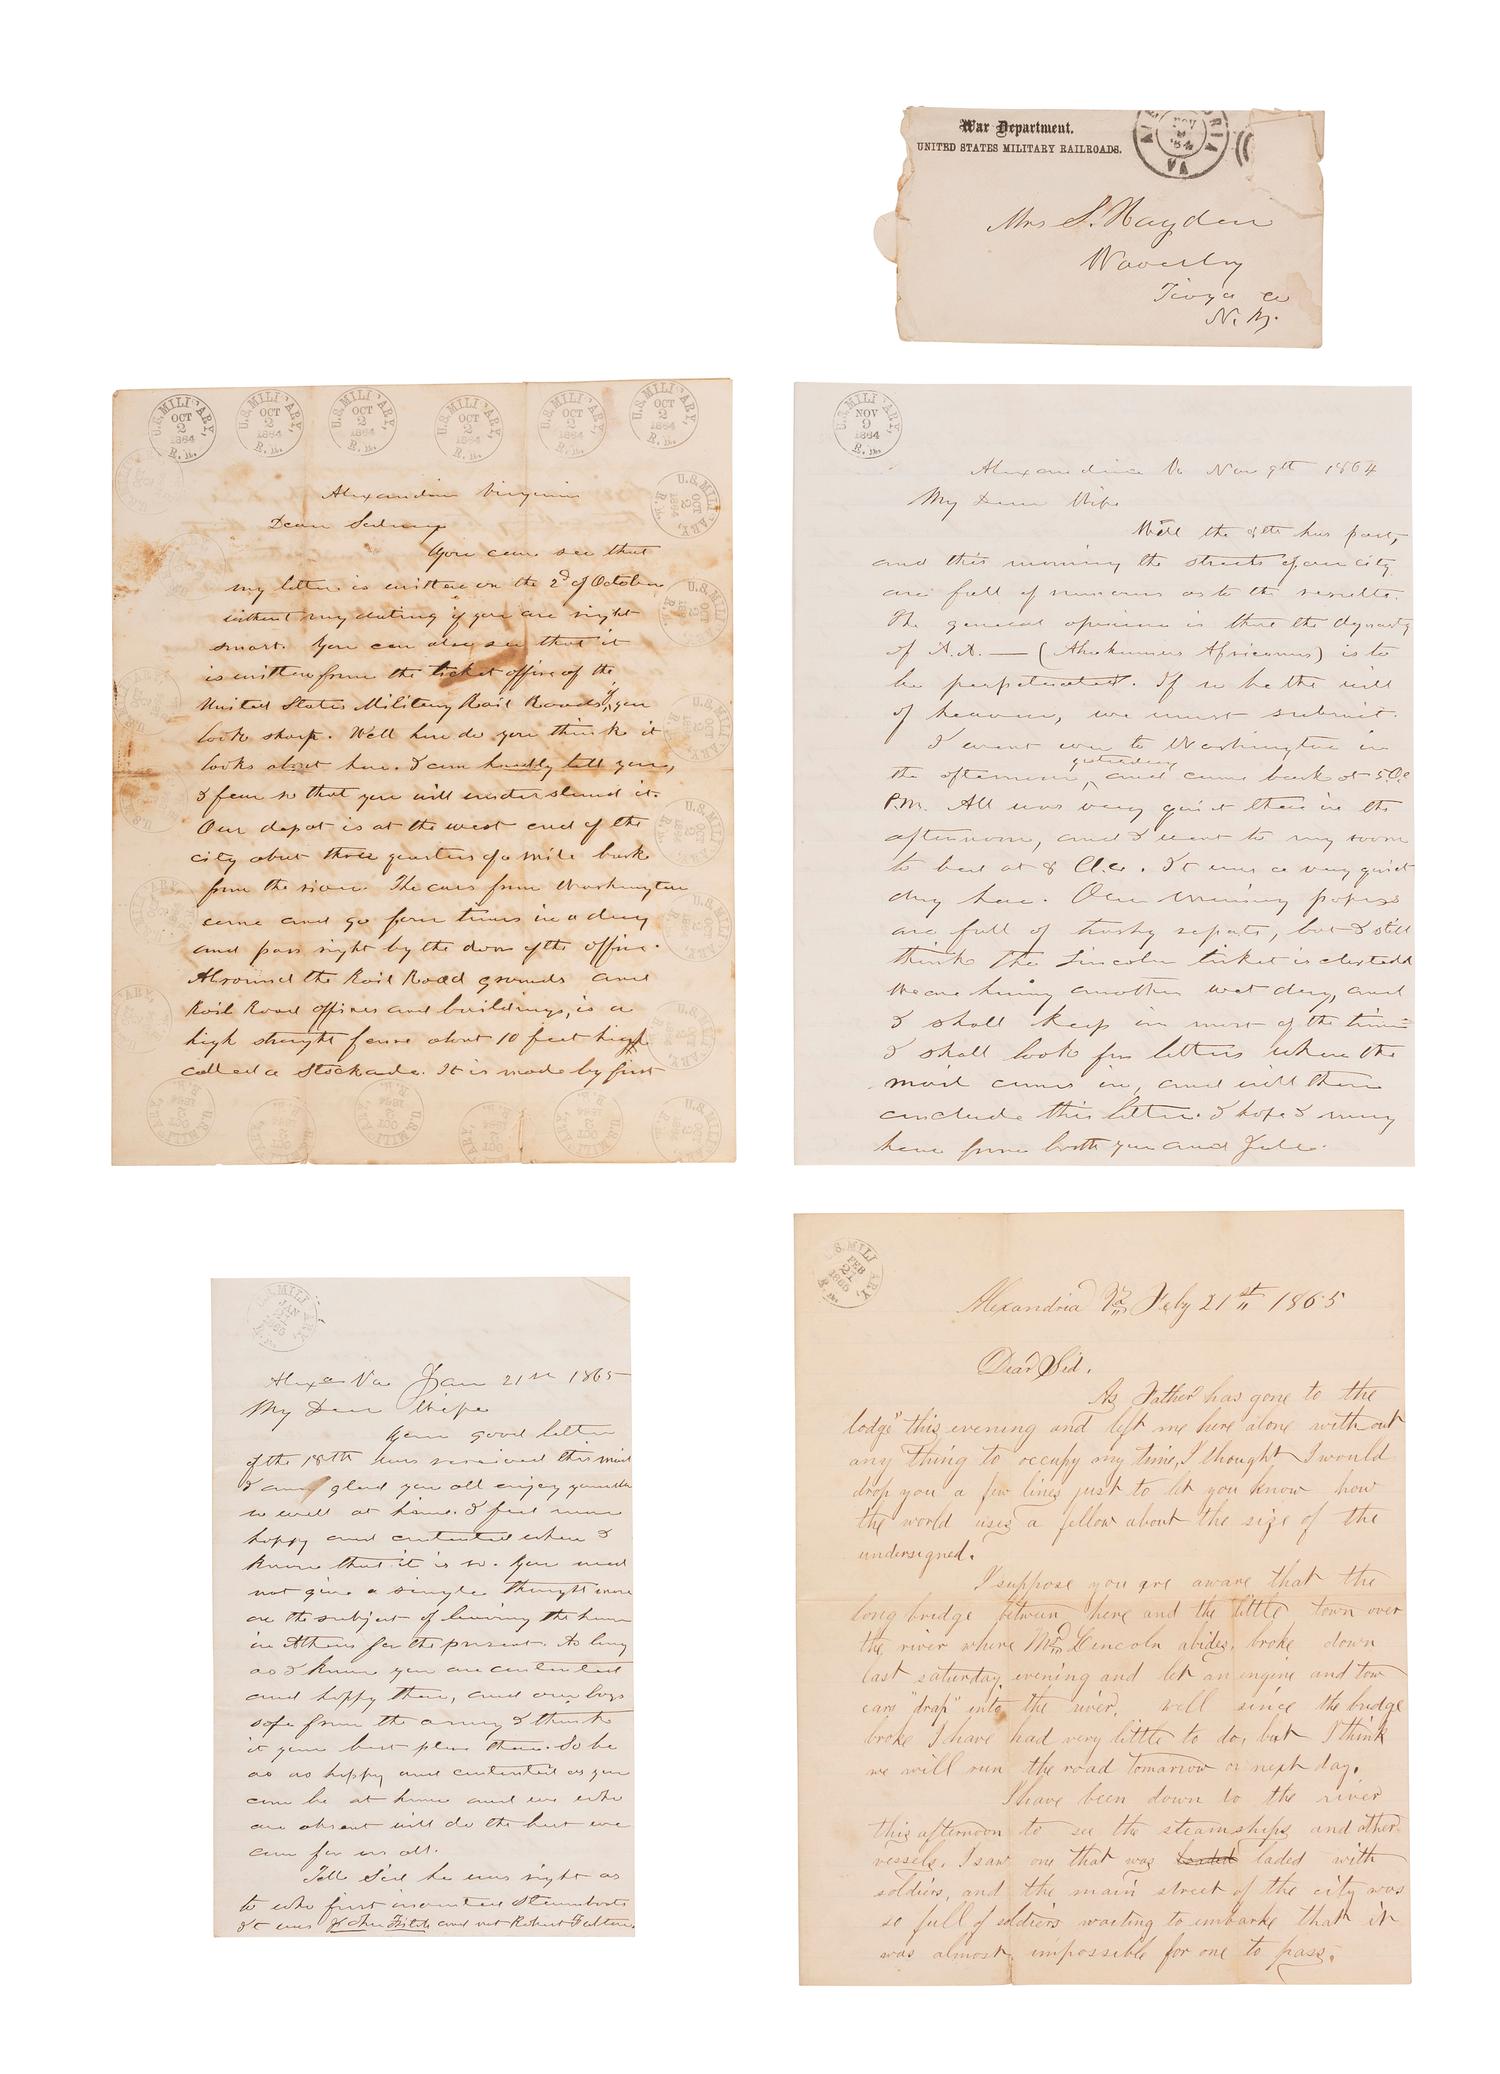 War Department.
UNITED STATES MILITARY RAILROADS.
ALEXANDRIA
NOV
'64
VA
Mrs S. Hayden
Waverly
Tioga Co
N. Y.
U.S. MILITARY, OCT 2 1864 R. Ds.
U.S. MILITARY, OCT 2 1864 R. Ds.
U.S. MILITARY, OCT 2 1864 R. Ds.
U.S. MILITARY, OCT 2 1864 R. Ds.
U.S. MILITARY, OCT 2 1864 R. Ds.
U.S. MILITARY, OCT 2 1864 R. Ds.
Alexandria Virginia
Dear Sidney
You can see that
my letter is written on the 2d of October
without my dating if you are right
smart. You can also see that it
is written from the ticket office of the
United States Military Rail Roads, if you
look sharp. Well how do you think it
looks about here. I can hardly tell you,
I fear so that you will understand it.
Our depot is at the west end of the
city about three quarters of a mile back
from the river. The cars from Washington
come and go four times in a day
and pass right by the door of the office.
Al around the Rail Road grounds and
Rail Road offices and buildings, is a
high straight fence about 10 feet high
called a Stockade. It is made by first
U.S. MILITARY, NOV 9 1864 R. Ds.
Alexandria Va Nov 9th 1864
My Dear Wife
Well the 8th has past,
and this morning the streets of our city
are full of rumours as to the results.
The general opinion is that the dynasty
of A.A. — (Abrahamus Africanus) is to
be perpetuated. If so be the will
of heaven, we must submit.
I went over to Washington in
the afternoon yesterday and came back at 5 O.c
P.M. All was very quiet there in the
afternoon, and I went to my room
to bed at 8 O.c. It was a very quiet
day here. Our morning papers
are full of trashy reports, but I still
think the Lincoln ticket is elected
We are having another wet day, and
I shall keep in most of the time
I shall look for letters when the
mail comes in, and will then
conclude this letter. I hope I may
hear from both you and Jule.
U.S. MILITARY, JAN
Alexa Va Jan 21st 1865
My Dear Wife
Your good letter
of the 18th was received this mail
I am glad you all enjoy yourselves
so well at home. I feel more
happy and contented when I
know that it is so. You need
not give a single thought more
on the subject of leaving the home
in Athens for the present. As long
as I know you are contented
and happy there, and our boys
safe from the army I think
it your best place there. So be
as as happy and contented as you
can be at home and we who
are absent will do the best we
can for us all.
Tell Sid he was right as
to who first invented Steamboats
It was John Fitch and not Robert Fulton.
U.S. MILITARY, FEB 21 1865 R. Ds.
Alexandria Va Feby 21st 1865
Dear Sid.
As Father has gone to the
lodge" this evening and left me here alone without
any thing to occupy my time, I thought I would
drop you a few lines just to let you know how
the world uses a fellow about the size of the
undersigned.
I suppose you are aware that the
long bridge between here and the little town over
the river where Mr Lincoln abides, broke down
last saturday evening and let an engine and two
cars "drap" into the river. well since the bridge
broke I have had very little to do, but I think
we will run the road tomorrow or next day.
I have been down to the river
this afternoon to see the steamships and other
vessels. I saw one that was laded with
soldiers, and the main street of the city was
so full of soldiers waiting to embarke that it
was almost impossible for one to pass.